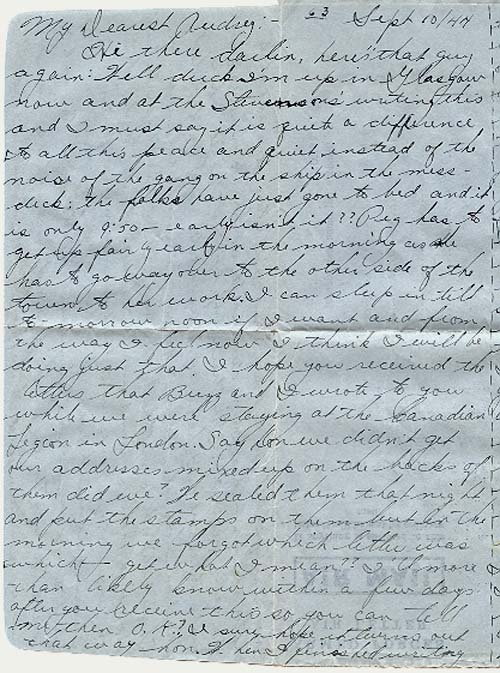 63 Sept 10/44
My Dearest Audrey:-
Hi there darlin, here's that guy
again: Well duck I'm up in Glasgow
now and at the Stevensons' writing this
and I must say it is quite a difference
to all this peace and quiet instead of the
noise of the gang on the ship in the mess-
deck: the folks have just gone to bed and it
is only 9:50 - early isn't it?? Peg has to
get up fairly early in the morning as she
has to go way over to the other side of the
town to her work. I can sleep in till
to-morrow noon if I want and from
the way I feel now I think I will be
doing just that. I hope you received the
letters that Buzz and I wrote to you
while we were staying at the Canadian
Legion in London. Say hon we didn't get
our addresses mixed up on the backs of
them did we? We sealed them that night
and put the stamps on them but in the
morning we forgot which letter was
which - get what I mean?? I'll more
than likely know within a few days
after you receive this so you can tell
me then O.K.? I sure hope it turns out
that way hon. When I finished writing